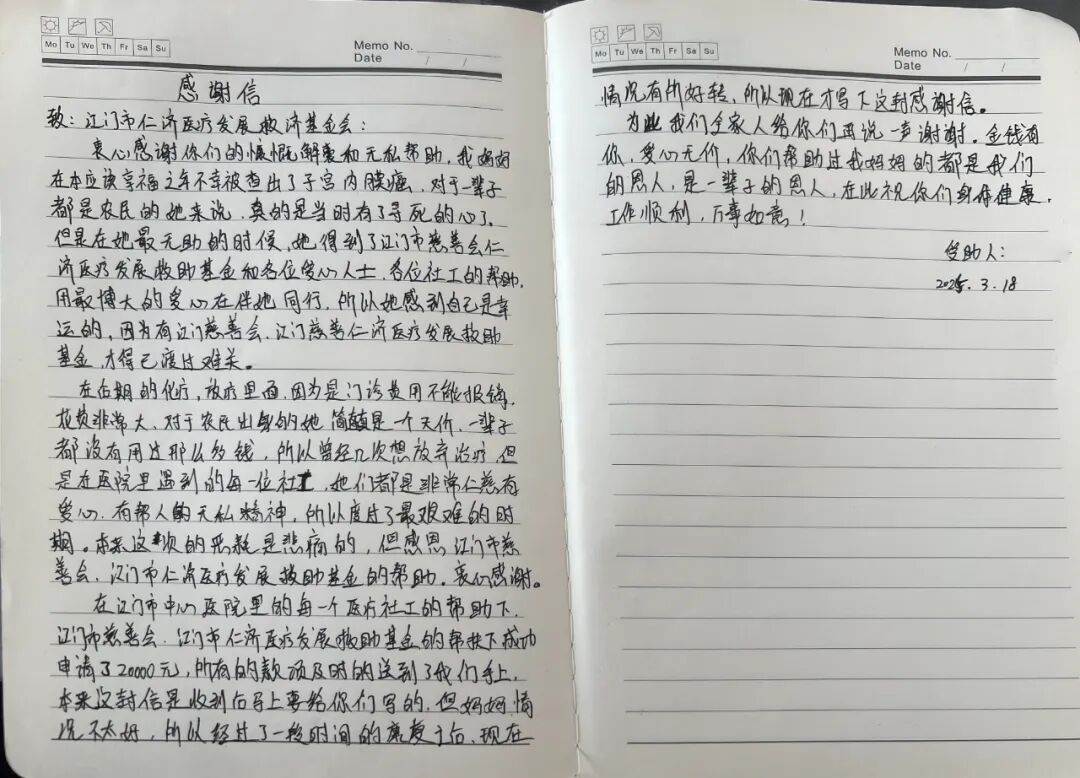 Mo Tu We Th Fr Sa Su
Memo No.
Date / /
感谢信
致：江门市仁济医疗发展救济基金会：
衷心感谢你们的慷慨解囊和无私帮助，我妈妈
在本应该享福之年不幸被查出了子宫内膜癌，对于一辈子
都是农民的她来说，真的是当时有了寻死的心了。
但是在她最无助的时候，她得到了江门市慈善会仁
济医疗发展救助基金和各位爱心人士，各位社工的帮助，
用最博大的爱心在伴她同行，所以她感到自己是幸
运的，因为有江门慈善会，江门慈善仁济医疗发展救助
基金，才得已渡过难关。
在后期的化疗，放疗里面，因为是门诊费用不能报销，
花费非常大，对于农民出身的她简直是一个天价，一辈子
都没有用过那么多钱，所以曾经几次想放弃治疗，但
是在医院里遇到的每一位社工，她们都是非常仁慈有
爱心，有帮人的无私精神，所以度过了最艰难的时
期。本来这次的恶耗是悲痛的，但感恩江门市慈
善会，江门市仁济医疗发展救助基金的帮助，衷心感谢。
在江门市中心医院里的每一个医疗社工的帮助下，
江门市慈善会，江门市仁济医疗发展救助基金的帮扶下成功
申请了20000元，所有的款项及时的送到了我们手上，
本来这封信是收到后马上要给你们写的，但妈妈情
况不太好，所以经过了一段时间的康复于后，现在
Mo Tu We Th Fr Sa Su
Memo No.
Date / /
情况有所好转，所以现在才写下这封感谢信。
为此我们全家人给你们再说一声谢谢，金钱有
价，爱心无价，你们帮助过我妈妈的都是我们
的恩人，是一辈子的恩人，在此祝你们身体健康，
工作顺利，万事如意！
受助人：
2025.3.18